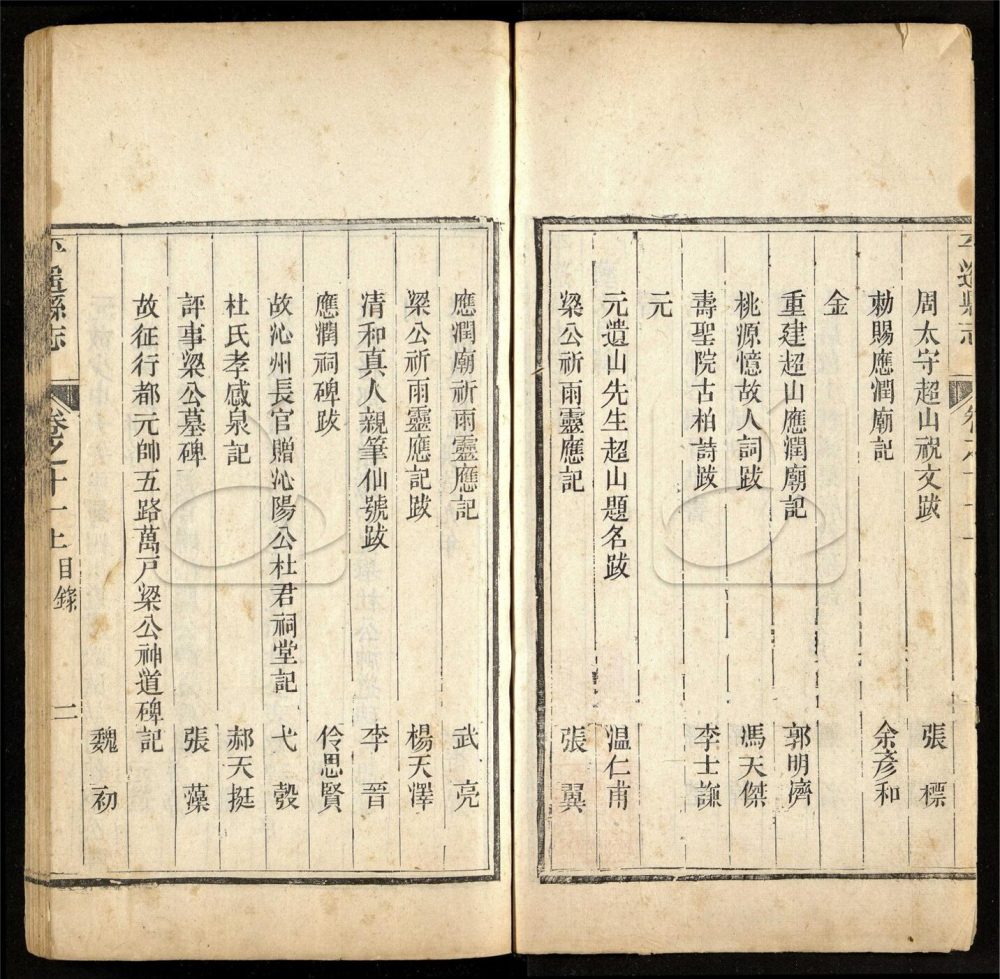 周太守超山祝文跋 張標
勅賜應潤廟記 余彥和
金
重建超山應潤廟記 郭明濟
桃源憶故人詞跋 馮天傑
壽聖院古柏詩跋 李士謙
元
元遺山先生超山題名跋 温仁甫
梁公祈雨靈應記 張翼
應潤廟祈雨靈應記 武亮
梁公祈雨靈應記跋 楊天澤
清和真人親筆仙號跋 李晉
應潤祠碑跋 伶思賢
故沁州長官贈沁陽公杜君祠堂記 弋彀
杜氏孝感泉記 郝天挺
評事梁公墓碑 張藻
故征行都元帥五路萬戸梁公神道碑記
魏初
平遥縣志 卷之十一上 目錄 二